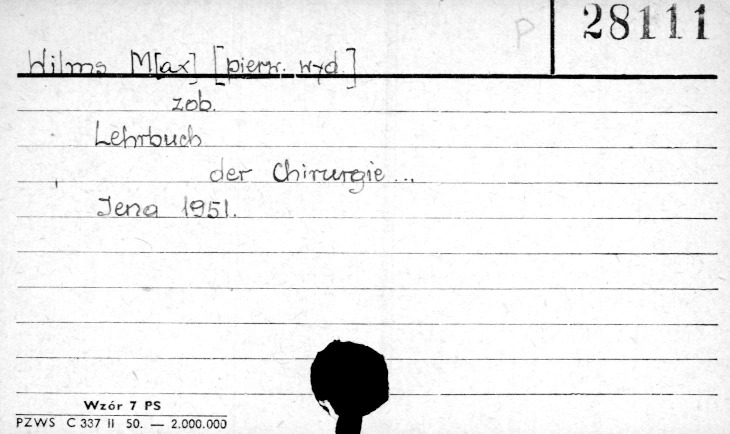 P
28111
Wilms M[ax] [pierw. wyd.]
zob.
Lehrbuch
der Chirurgie...
Jena 1951.
Wzór 7 PS
PZWS C 337 II 50. — 2.000.000